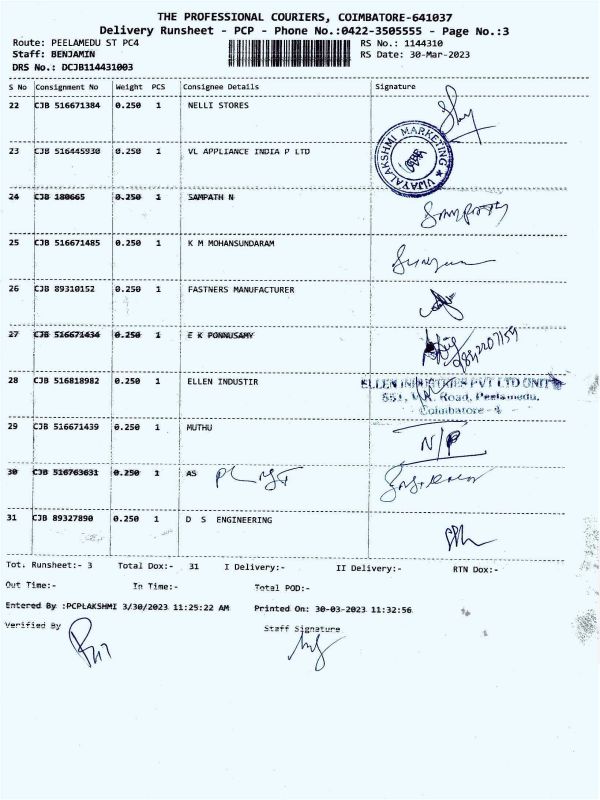 THE PROFESSIONAL COURIERS, COIMBATORE-641037
Delivery Runsheet - PCP - Phone No.:0422-3505555 - Page No.:3
Route: PEELAMEDU ST PC4 RS No.: 1144310
Staff: BENJAMIN RS Date: 30-Mar-2023
DRS No.: DCJB114431003
S No Consignment No Weight PCS Consignee Details Signature
22 CJB 516671384 0.250 1 NELLI STORES
23 CJB 516445930 0.250 1 VL APPLIANCE INDIA P LTD
VIJAYALAKSHMI MARKETING
24 CJB 180665 0.250 1 SAMPATH N
25 CJB 516671485 0.250 1 K M MOHANSUNDARAM
26 CJB 89310152 0.250 1 FASTNERS MANUFACTURER
27 CJB 516671434 0.250 1 E K PONNUSAMY
28 CJB 516818982 0.250 1 ELLEN INDUSTIR
ELLEN INDUSTRIES PVT LTD UNIT
551, Road, Peelamedu,
Coimbatore - 4
29 CJB 516671439 0.250 1 MUTHU N/P
30 CJB 516763631 0.250 1 AS
31 CJB 89327890 0.250 1 D S ENGINEERING
Tot. Runsheet:- 3 Total Dox:- 31 I Delivery:- II Delivery:- RTN Dox:-
Out Time:- In Time:- Total POD:-
Entered By :PCPLAKSHMI 3/30/2023 11:25:22 AM Printed On: 30-03-2023 11:32:56
Verified By Staff Signature